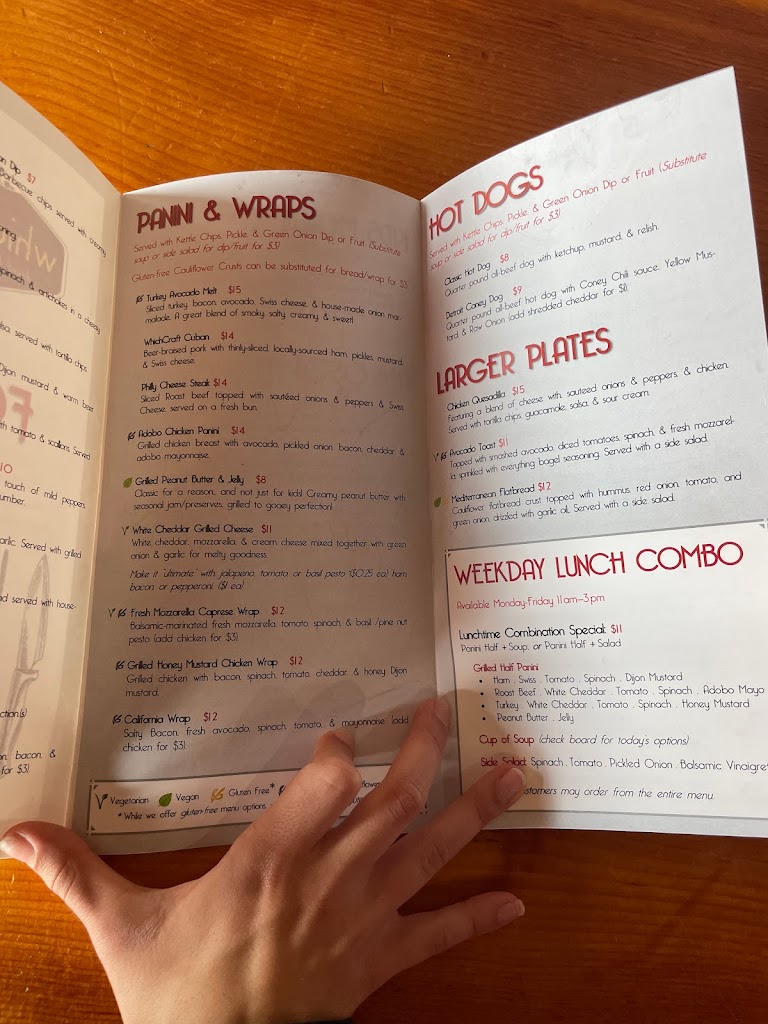 on Dip $7
Barbecue chips served with creamy
spinach & artichokes in a cheesy
salsa, served with tortilla chips
Dijon mustard & warm beer
with tomato & scallions. Served
touch of mild peppers
garlic. Served with grilled
and served with house-
on, bacon, &
for $3)
PANINI & WRAPS
Served with Kettle Chips, Pickle, & Green Onion Dip or Fruit (Substitute
soup or side salad for dip/fruit for $3)
Gluten-free Cauliflower Crusts can be substituted for bread/wrap for $3
Turkey Avocado Melt $15
Sliced turkey, bacon, avocado, Swiss cheese, & house-made onion mar-
malade. A great blend of smoky, salty, creamy, & sweet!
WhichCraft Cuban $14
Beer-braised pork with thinly-sliced, locally-sourced ham, pickles, mustard,
& Swiss cheese.
Philly Cheese Steak $14
Sliced Roast beef topped with sautéed onions & peppers & Swiss
Cheese, served on a fresh bun.
Adobo Chicken Panini $14
Grilled chicken breast with avocado, pickled onion, bacon, cheddar, &
adobo mayonnaise.
Grilled Peanut Butter & Jelly $8
Classic for a reason, and not just for kids! Creamy peanut butter with
seasonal jam/preserves, grilled to gooey perfection!
White Cheddar Grilled Cheese $11
White cheddar, mozzarella, & cream cheese mixed together with green
onion & garlic for melty goodness.
Make it "ultimate" with jalapeño, tomato or basil pesto ($0.25 ea) ham,
bacon or pepperoni. ($1 ea)
Fresh Mozzarella Caprese Wrap $12
Balsamic-marinated fresh mozzarella, tomato, spinach, & basil /pine nut
pesto (add chicken for $3)
Grilled Honey Mustard Chicken Wrap $12
Grilled chicken with bacon, spinach, tomato, cheddar, & honey Dijon
mustard.
California Wrap $12
Salty Bacon, fresh avocado, spinach, tomato, & mayonnaise (add
chicken for $3)
Vegetarian Vegan Gluten Free*
*While we offer gluten-free menu options
HOT DOGS
Served with Kettle Chips, Pickle, & Green Onion Dip or Fruit (Substitute
soup or side salad for dip/fruit for $3)
Classic Hot Dog $8
Quarter pound all-beef dog with ketchup, mustard, & relish.
Detroit Coney Dog $9
Quarter pound all-beef hot dog with Coney Chili sauce, Yellow Mus-
tard & Raw Onion (add shredded cheddar for $1).
LARGER PLATES
Chicken Quesadilla $15
Featuring a blend of cheese with, sauteed onions & peppers, & chicken.
Served with tortilla chips, guacamole, salsa, & sour cream.
Avocado Toast $11
Topped with smashed avocado, diced tomatoes, spinach, & fresh mozzarel-
la, sprinkled with everything bagel seasoning. Served with a side salad.
Mediterranean Flatbread $12
Cauliflower flatbread crust topped with hummus, red onion, tomato, and
green onion, drizzled with garlic oil. Served with a side salad.
WEEKDAY LUNCH COMBO
Available Monday-Friday 11am-3pm
Lunchtime Combination Special: $11
Panini Half + Soup, or Panini Half + Salad
Grilled Half Panini
• Ham . Swiss . Tomato . Spinach . Dijon Mustard
• Roast Beef . White Cheddar . Tomato . Spinach . Adobo Mayo
• Turkey . White Cheddar . Tomato . Spinach . Honey Mustard
• Peanut Butter . Jelly
Cup of Soup (check board for today's options)
Side Salad: Spinach . Tomato . Pickled Onion . Balsamic Vinaigre
customers may order from the entire menu.